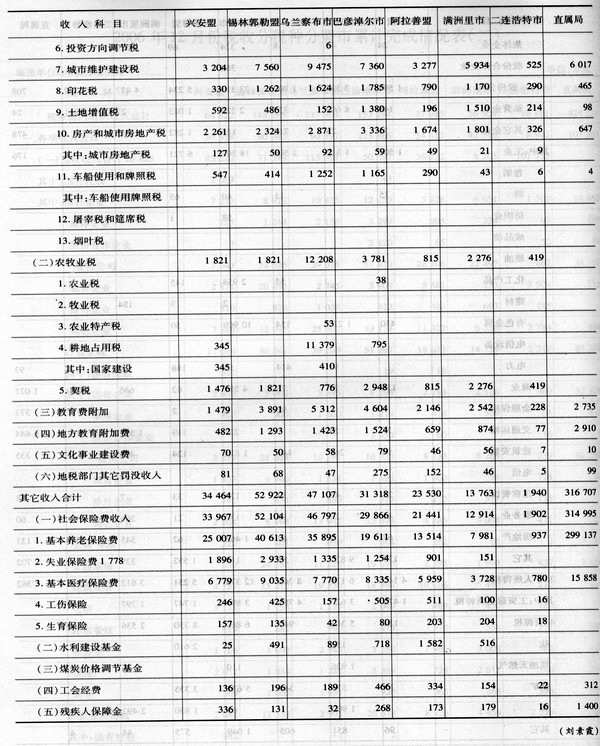 收 入 科 目 兴安盟 锡林郭勒盟 乌兰察布市 巴彦淖尔市 阿拉善盟 满洲里市 二连浩特市 直属局
6. 投资方向调节税 6
7. 城市维护建设税 3 204 7 560 9 475 7 360 3 277 5 934 525 6 017
8. 印花税 330 1 262 1 624 1 785 790 1 170 290 465
9. 土地增值税 592 486 152 1 380 196 1 510 214 98
10. 房产和城市房地产税 2 261 2 324 2 871 3 336 1 674 1 801 326 647
其中:城市房地产税 127 50 92 59 49 21 9
11. 车船使用和牌照税 547 414 1 252 1 165 290 43 6 4
其中:车船使用牌照税
12. 屠宰税和筵席税
13. 烟叶税
(二)农牧业税 1 821 1 821 12 208 3 781 815 2 276 419
1. 农业税 38
2. 牧业税
3. 农业特产税 53
4. 耕地占用税 345 11 379 795
其中:国家建设 345 410
5. 契税 1 476 1 821 776 2 948 815 2 276 419
(三)教育费附加 1 479 3 891 5 312 4 604 2 146 2 542 228 2 735
(四)地方教育附加费 482 1 293 1 423 1 524 659 874 77 2 910
(五)文化事业建设费 70 50 58 79 46 56 7 10
(六)地税部门其它罚没收入 81 68 47 275 152 46 5 99
其它收入合计 34 464 52 922 47 107 31 318 23 530 13 763 1 940 316 707
(一)社会保险费收入 33 967 52 104 46 797 29 866 21 441 12 914 1 902 314 995
1. 基本养老保险费 25 007 40 613 35 895 19 611 13 514 7 981 937 299 137
2. 失业保险费 1 778 1 896 2 933 1 335 1 254 901 151
3. 基本医疗保险费 6 779 9 035 7 770 8 335 5 959 3 728 780 15 858
4. 工伤保险 246 425 157 505 511 100 16
5. 生育保险 157 135 42 80 203 204 18
(二)水利建设基金 25 491 89 718 1 582 516
(三)煤炭价格调节基金
(四)工会经费 136 196 189 466 334 154 22 312
(五)残疾人保障金 336 131 32 268 173 179 16 1 400
(刘素霞)